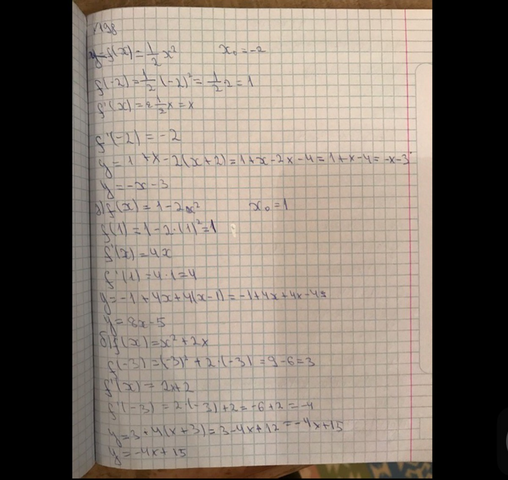 198
y=f(x)=1/2 x² x₀=-2
f(-2)=1/2(-2)²=1/2 2=1
f'(x)=2 1/2 x=x
f'(-2)=-2
y=1+x-2(x+2)=1+x-2x-4=1+x-4=-x-3
y=-x-3
f(x)=1-2x² x₀=1
f(1)=1-2·(1)²=1
f'(x)=4x
f'(1)=4·1=4
y=-1+4x+4(x-1)=-1+4x+4x-4=
y=8x-5
б) f(x)=x²+2x
f(-3)=(-3)²+2·(-3)=9-6=3
f'(x)=2x+2
f'(-3)=2·(-3)+2=-6+2=-4
y=3+4(x+3)=3-4x+12=-4x+15
y=-4x+15